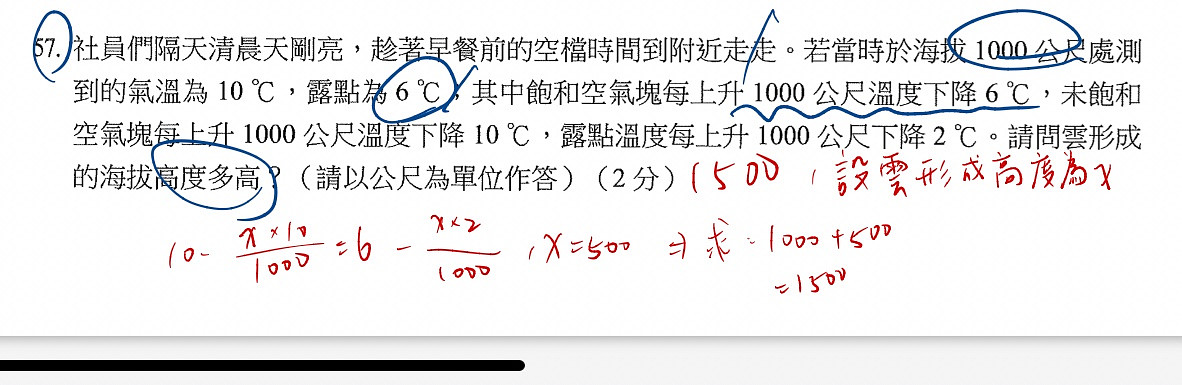 57. 社員們隔天清晨天剛亮，趁著早餐前的空檔時間到附近走走。若當時於海拔 1000 公尺處測
到的氣溫為 10 ℃，露點為 6 ℃，其中飽和空氣塊每上升 1000 公尺溫度下降 6 ℃，未飽和
空氣塊每上升 1000 公尺溫度下降 10 ℃，露點溫度每上升 1000 公尺下降 2 ℃。請問雲形成
的海拔高度多高？（請以公尺為單位作答）（2 分）1500，設雲形成高度為 x
10- x×10/1000 = 6 - x×2/1000，x=500 ⇒ 求：1000+500
=1500